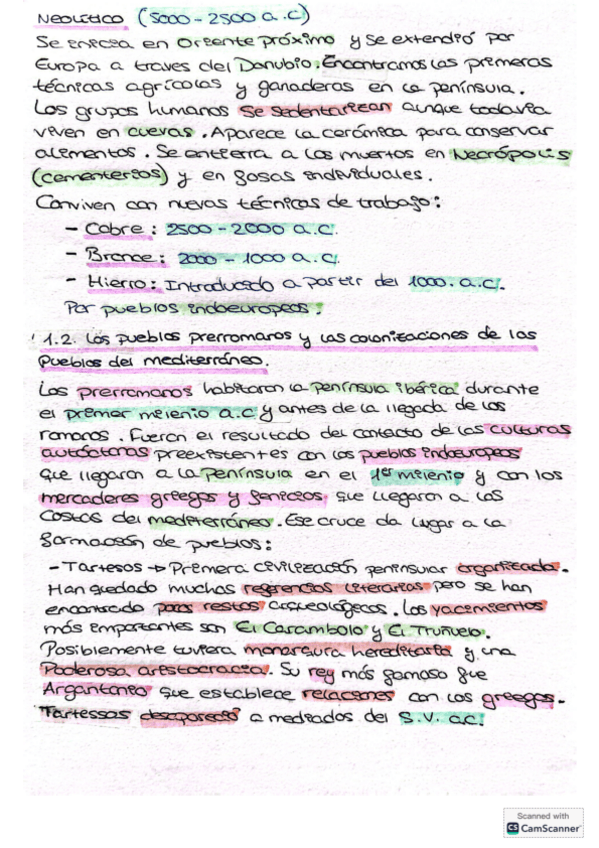 Neolítico (5000 - 2500 a.C)
Se inicia en Oriente próximo y se extendió por
Europa a traves del Danubio. Encontramos las primeras
técnicas agrícolas y ganaderas en la península.
Los grupos humanos se sedentarizan aunque todavía
viven en cuevas. Aparece la cerámica para conservar
alimentos. Se entierra a los muertos en Necrópolis
(cementerios) y en fosas individuales.
Conviven con nuevas técnicas de trabajo:
- Cobre: 2500 - 2000 a.C.
- Bronce: 2000 - 1000 a.C.
- Hierro: Introducido a partir del 1000. a.C.
Por pueblos indoeuropeos.
1.2. Los pueblos prerromanos y las colonizaciones de los
pueblos del mediterráneo.
Los prerromanos habitaron la península ibérica durante
el primer milenio a.C y antes de la llegada de los
romanos. Fueron el resultado del contacto de las culturas
autóctonas preexistentes con los pueblos indoeuropeos
que llegaron a la península en el 1er milenio y con los
mercaderes griegos y fenicios, que llegaron a las
costas del mediterráneo. Ese cruce da lugar a la
formación de pueblos:
- Tartesos → Primera civilización peninsular organizada.
Han quedado muchas referencias literarias pero se han
encontrado pocos restos arqueológicos. Los yacimientos
más importantes son El Carambolo y El Truñuelo.
Posiblemente tuviera monarquía hereditaria y una
Poderosa aristocracia. Su rey más famoso fue
Argantonio que establece relaciones con los griegos.
Tartessos desapareció a mediados del S.V. a.C.
Scanned with
CS CamScanner